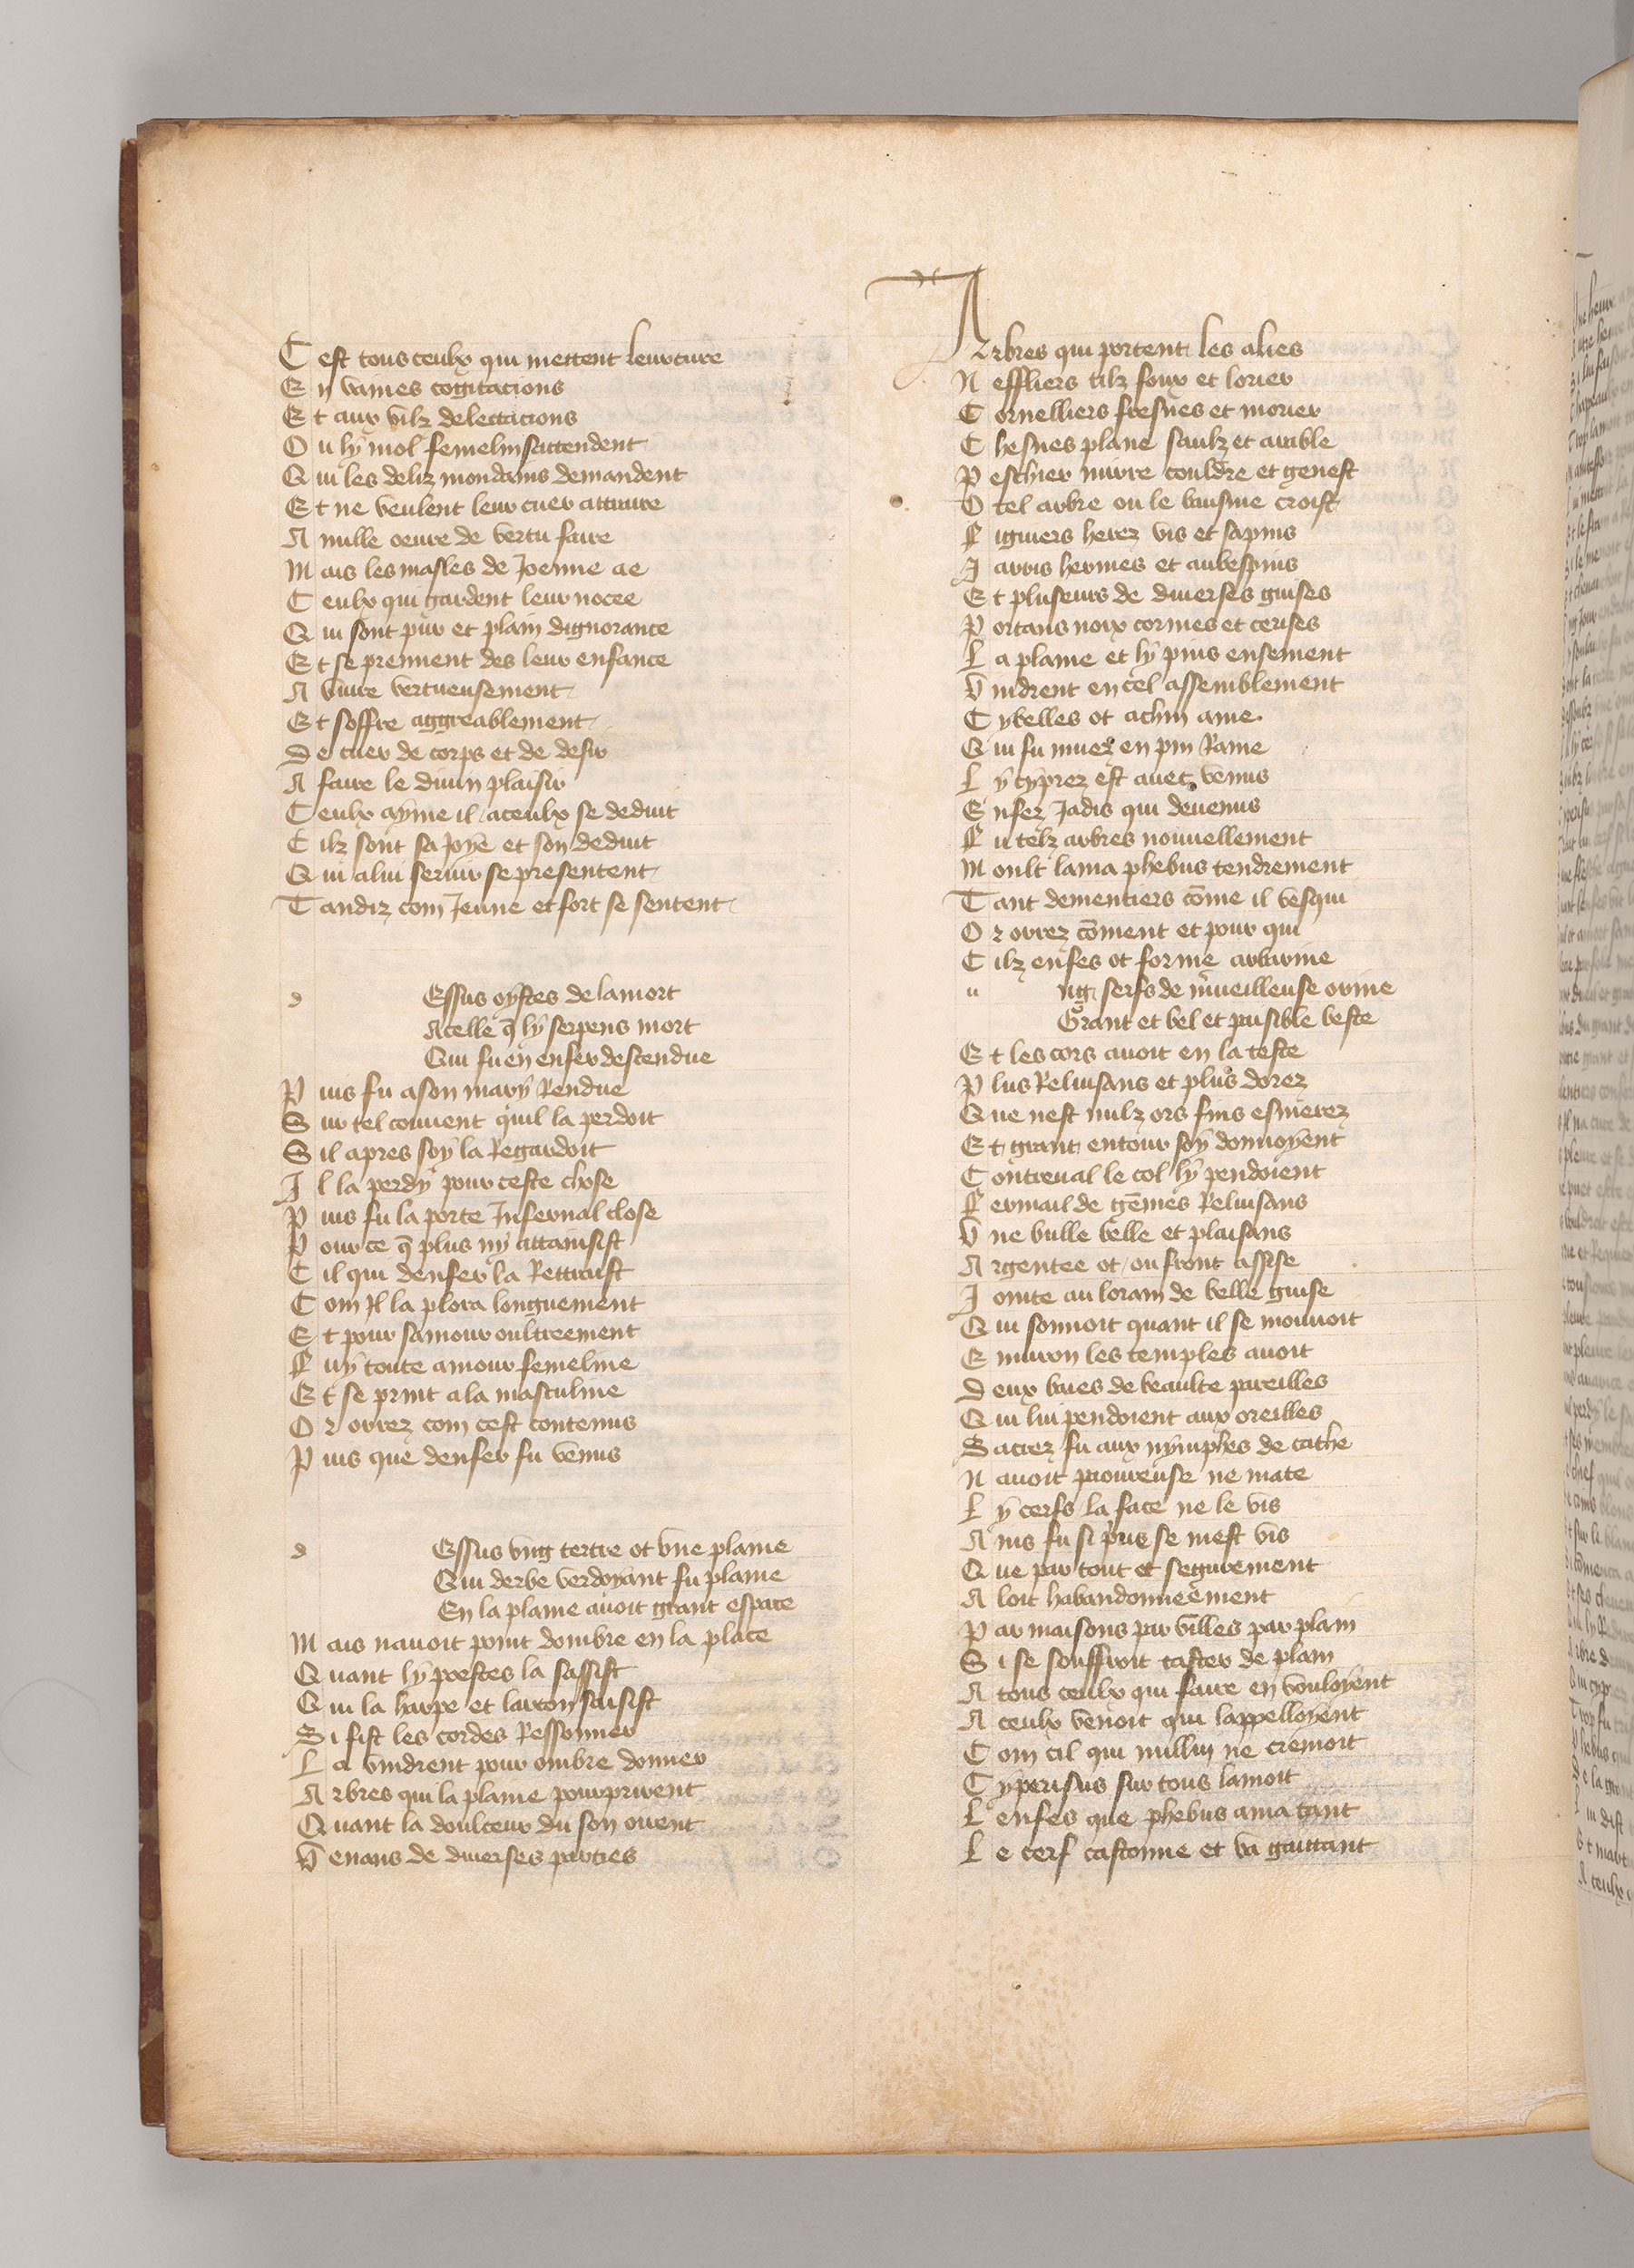 C est tous ceulx qui mettent leur cure
E n vaines cogitacions
E t aux vilz delectacions
O u ly mol femelin sattendent
Q ui les deliz mondains demandent
E t ne veulent leur cuer attraire
A nulle oeuvre de vertu faire
M ais les masles de Joenne ae
C eulx qui gardent leur nocee
Q ui sont pur et plain dignorance
E t se prennent des leur enfance
A vivre vertueusement
E t soffre aggreablement
D e cuer de corps et de desir
A faire le divin plaisir
C eulx ayme il aceulx se deduit
C ilz sont sa Joye et son deduit
Q ui alui servir se presentent
T andiz com Jeune et fort se sentent
d Essus oystes de la mort
A celle q̄ ly serpens mort
Qui fu en enfer descendue
P uis fu a son mary Rendue
S ur tel convent quil la perdoit
S il apres soy la Regardoit
I l la perdy pour ceste chose
P uis fu la porte Infernal close
P our ce q̄ plus ny attainsist
C il qui denfer la Rettraist
C om Il la plora longuement
E t pour samour oultreement
F uy toute amour femeline
E t se print a la masculine
O r orrez com cest contenus
P uis que denfer fu venus
d Essus vng tertre ot vne plaine
Qui derbe verdoyant fu plaine
En la plaine avoit grant espace
M ais navoit point dombre en la place
Q uant ly poestes la sassist
Q ui la harpe et larcon saisist
S i fist les cordes Ressonner
L a vindrent pour ombre donner
A rbres qui la plaine pourprirent
Q uant la doulceur du son oirent
V enans de diverses parties
A rbres qui portent les alies
N effliers tilz foux et lorier
C ornelliers fresnes et morier
C hesnes plane saulz et arable
P eschier mirre couldre et genest
O tel arbre ou le baisme croist
F iguiers herez vis et sapins
I arris hermes et aubespins
E t pluseurs de diverses guises
P ortans noix cormes et cerises
L a plaine et ly pins ensement
V indrent en cel assemblement
C ybelles ot achin ame
Q ui fu muez en pin Rame
L y cyprez est avec venus
E nfez Jadis qui devenus
F u telz arbres nouvellement
M oult lama phebus tendrement
T ant dementiers cōme il vesqui
O r orrez cōment et pour qui
C ilz enfes ot forme arbrine
u ng serfs de m̄veilleuse orine
Grant et bel et paisible beste
E t les cors avoit en la teste
P lus Reluisans et plus dorez
Q ue nest nulz ors fins esmerez
E t grant entour soy donnoyent
C ontreval le col ly pendoient
F ermail de gēmes Reluisans
V ne bulle belle et plaisans
A rgentee ot ou front assise
J ointe au lorain de belle guise
Q ui sonnoit quant il se mouvoit
E nuiron les temples avoit
D eux baies de beaulte pareilles
Q ui lui pendoient aux oreilles
S acrez fu aux nymphes de cathe
N avoit paoureuse ne mate
L y cerfs la face ne le vis
A ins fu si prise se mest vis
Q ue par tout et segurement
A loit habandonneement
P ar maisons par villes par plain
S i se souffroit taster de plain
A tous ceulx qui faire en vouloyent
A ceulx venoit qui lappelloyent
C om cil qui nullui ne cremoit
C yperisus sur tous lamoit
L enfes que phebus ama tant
L e cerf castonne et va gaittant